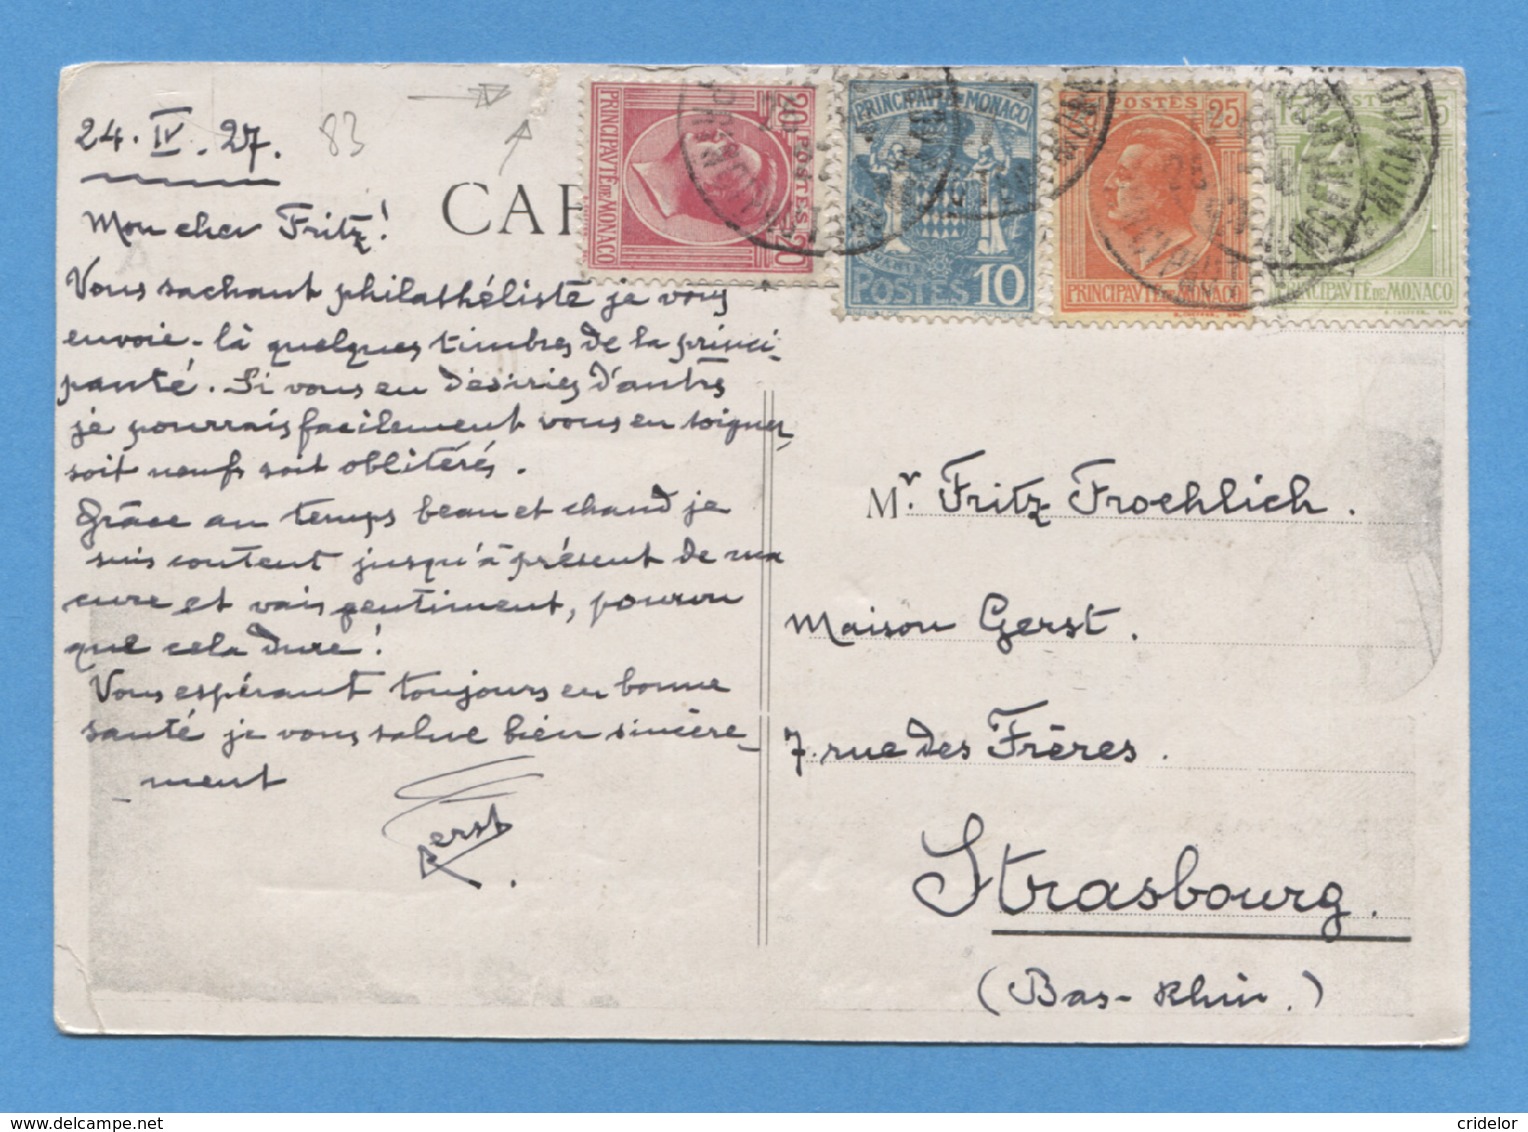 24. IV. 27.
83
CAR
Mon cher Fritz!
Vous sachant philathéliste je vous
envoie-là quelques timbres de la princi-
pauté. Si vous en désiriez d'autrs
je pourrais facilement vous en soigner,
soit neufs soit oblitérés.
Grâce au temps beau et chaud je
suis content jusqu'à présent de ma
cure et vais gentiment, pourvu
que cela dure!
Vous espérant toujours en bonne
santé je vous salue bien sincère-
ment
Gerst
20 POSTES 20
PRINCIPAVTÉ DE MONACO
PRINCIPAVTÉ DE MONACO
POSTES 10
POSTES 25
PRINCIPAVTÉ DE MONACO
POSTES 15
PRINCIPAVTÉ DE MONACO
Mr. Fritz Froehlich.
Maison Gerst.
7. rue des Frères.
Strasbourg.
(Bas-Rhin.)
cridelor